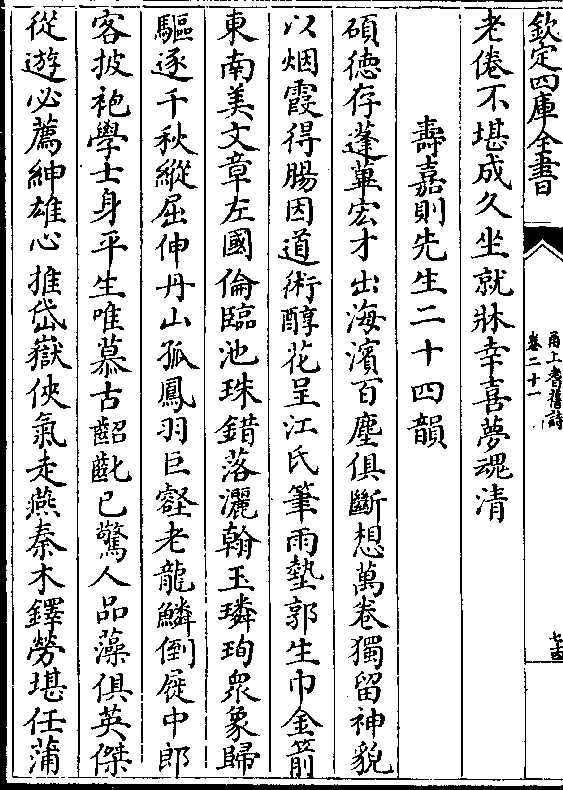 欽定四庫全書
甬上耆舊詩
卷二十一
七四
老倦不堪成久坐就牀幸喜夢魂清
壽嘉則先生二十四韻
碩德存蓬蓽宏才出海濱百塵俱斷想萬卷獨留神貌
以烟霞得腸因道術醇花呈江氏筆雨墊郭生巾金箭
東南美文章左國倫臨池珠錯落灑翰玉璘珣衆象歸
驅逐千秋縱屈伸丹山孤鳳羽巨壑老龍鱗倒屣中郎
客披袍學士身平生唯慕古齠齔已驚人品藻俱英傑
從遊必薦紳雄心推岱嶽俠氣走燕秦木鐸勞堪任蒲